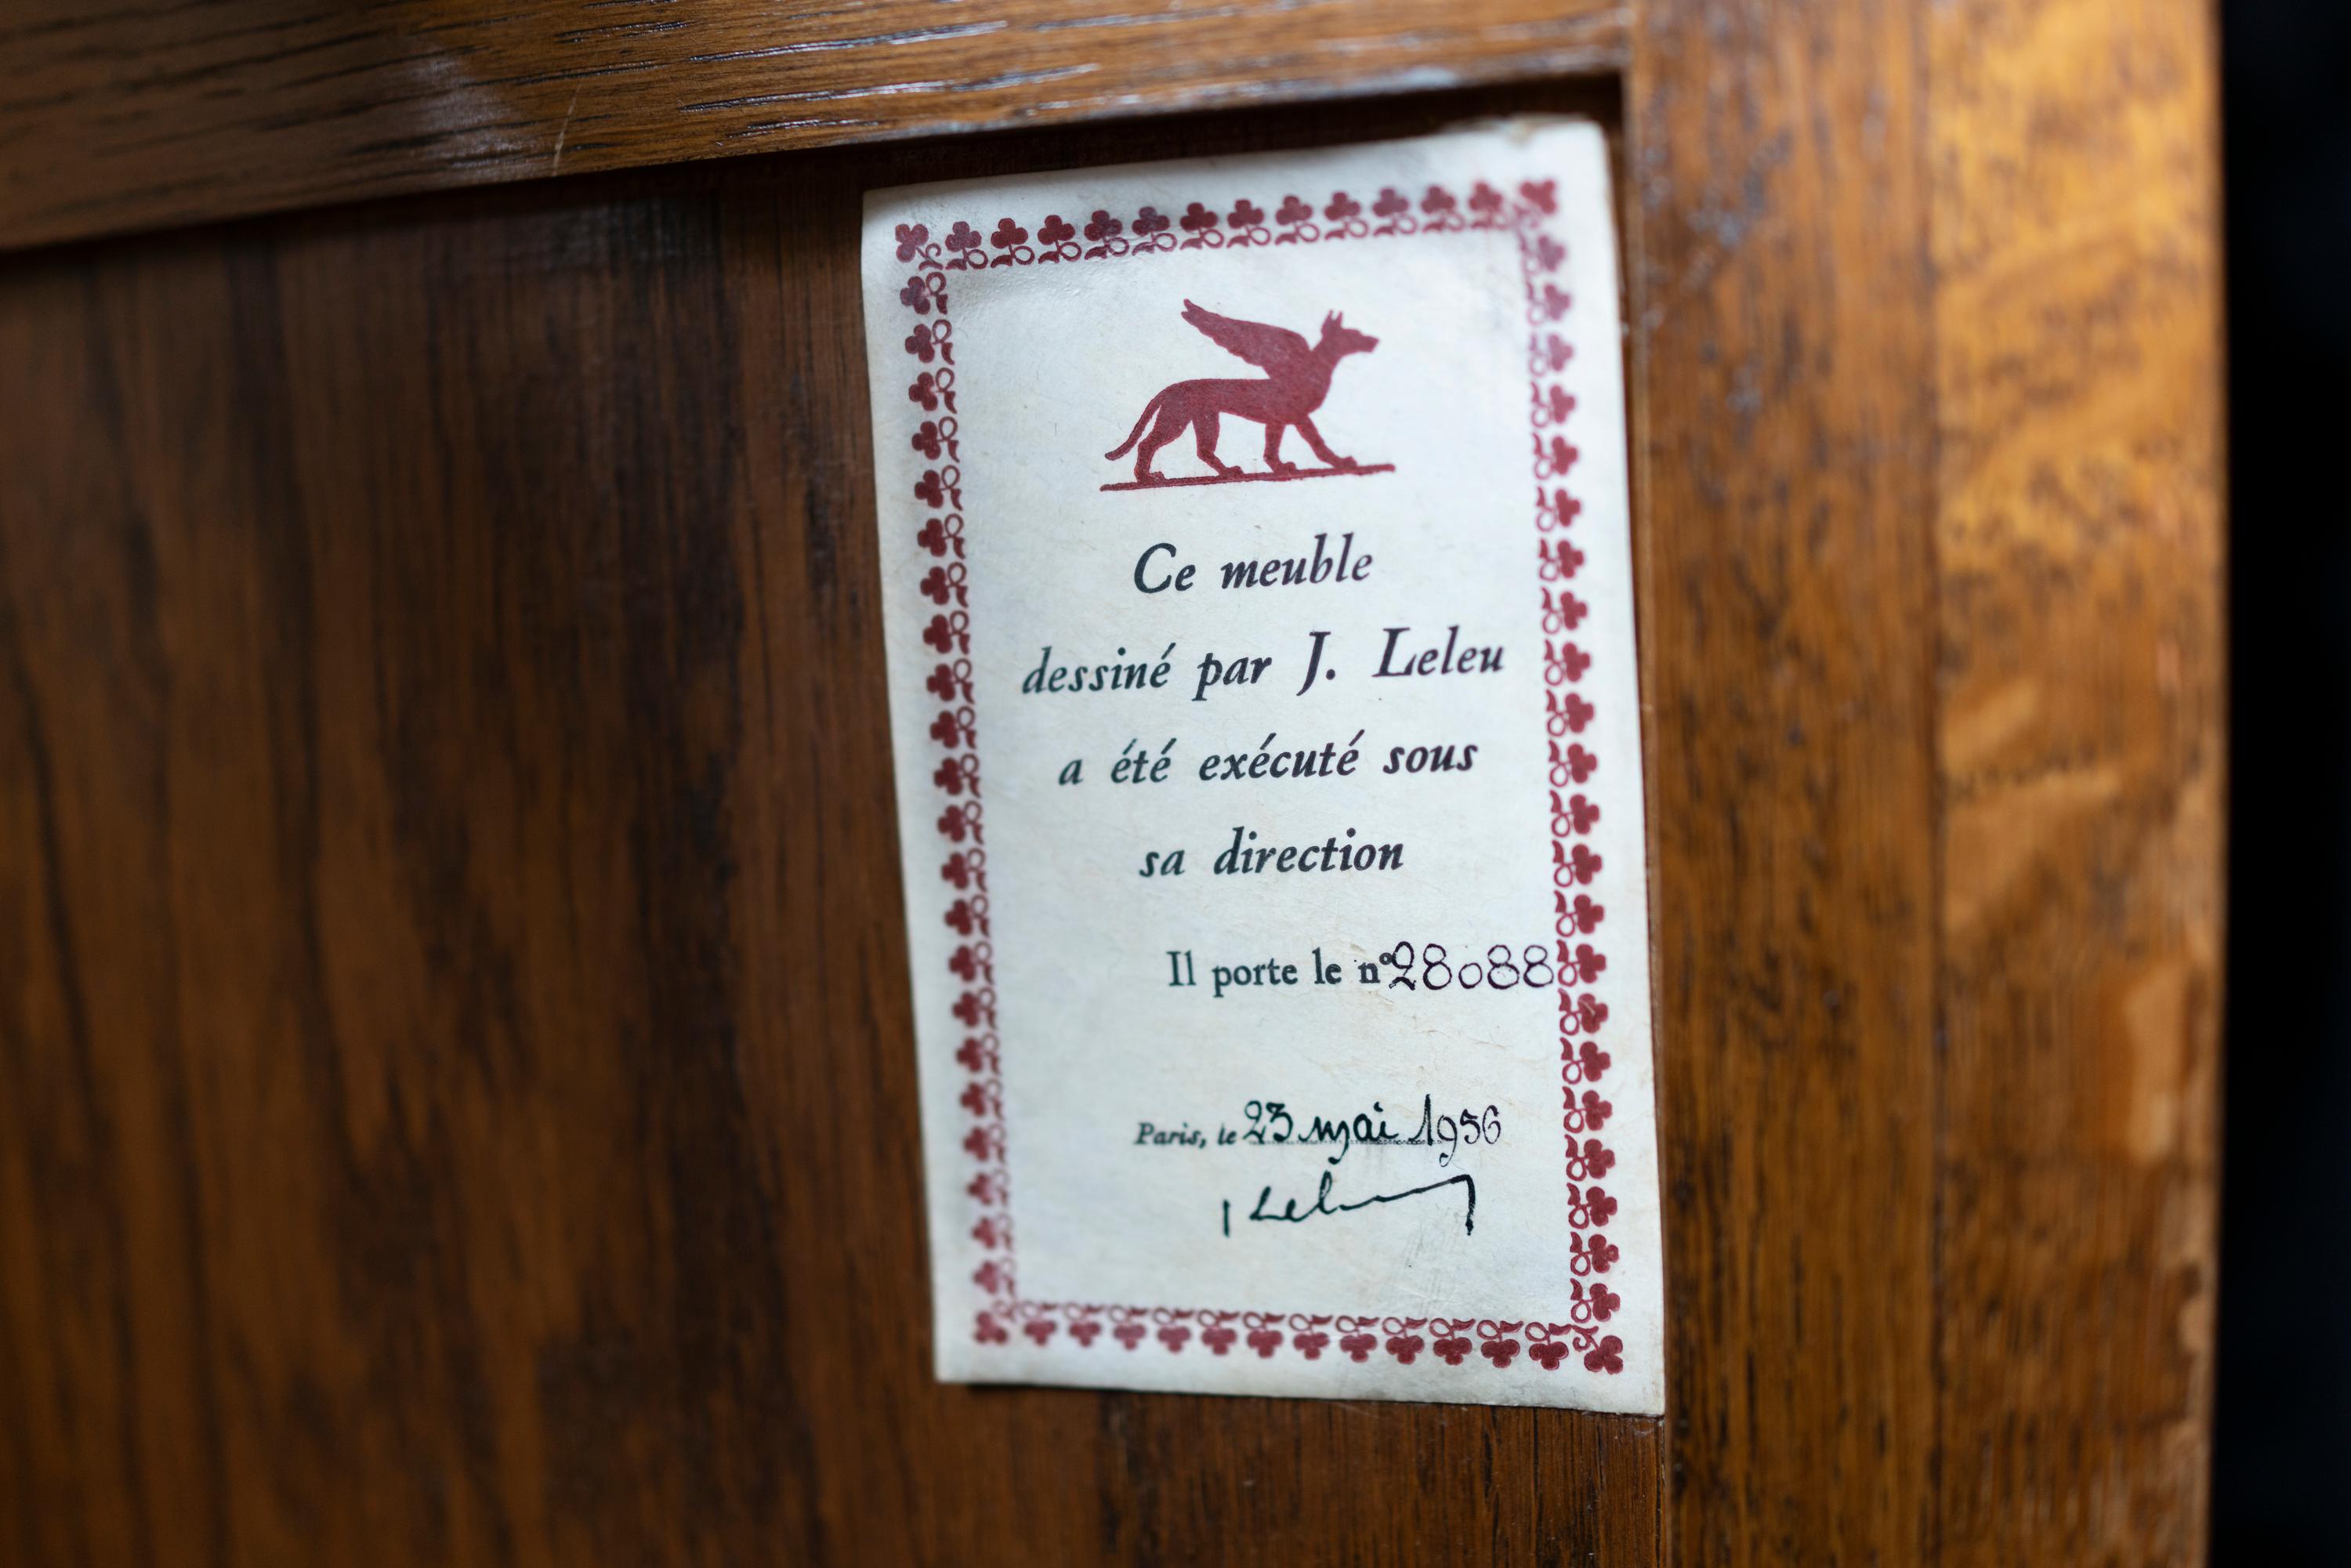 Ce meuble
dessiné par J. Leleu
a été exécuté sous
sa direction
Il porte le n° 28088
Paris, le 23 mai 1956
J Leleu